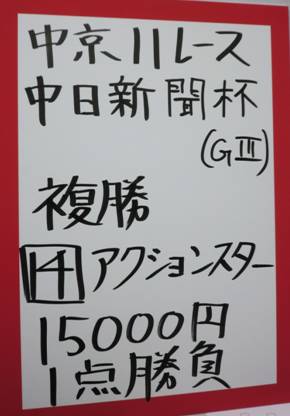 中京11レース
中日新聞杯
(GⅢ)
複勝
14 アクションスター
15000円
1点勝負